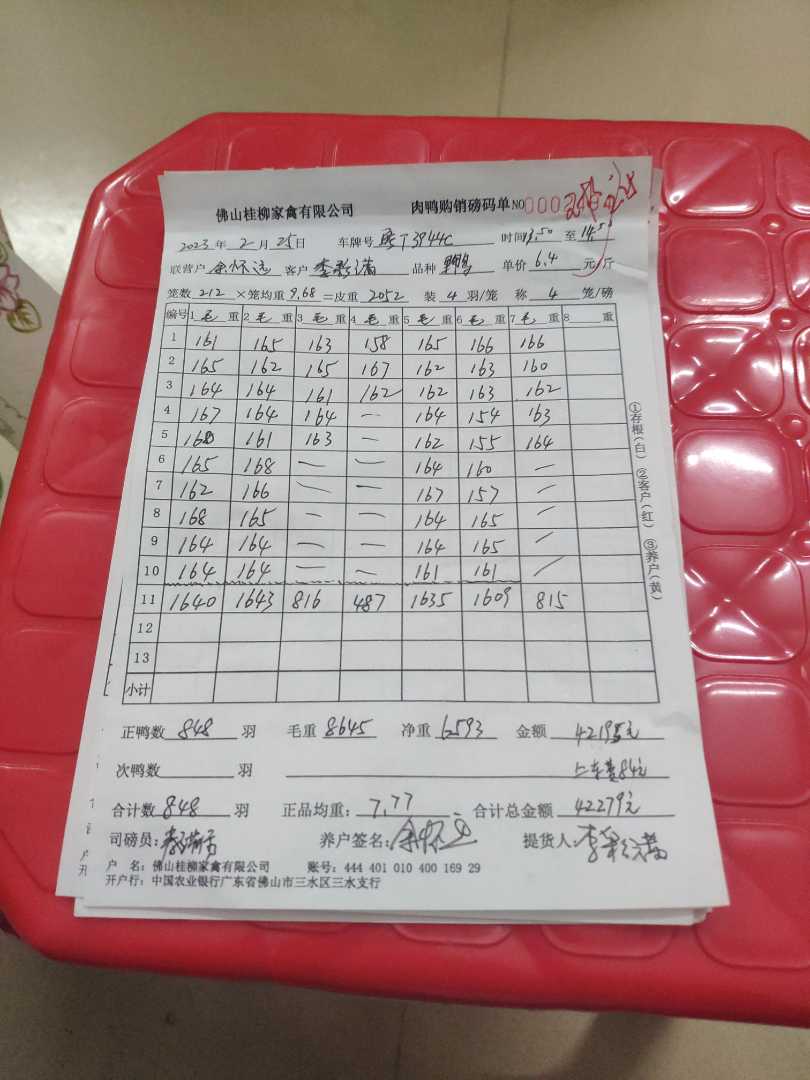 佛山桂柳家禽有限公司 肉鸭购销磅码单 NO 000
2023 年 2 月 25 日 车牌号 粤T3944C 时间 13.50 至 14.5
联营户 余怀远 客户 李彩满 品种 单价 6.4 元/斤
笼数 212 ×笼均重 9.68 =皮重 2052 装 4 羽/笼 称 4 笼/磅
编号 1 毛 重 2 毛 重 3 毛 重 4 毛 重 5 毛 重 6 毛 重 7 毛 重 8 重
1 161 165 163 158 165 166 166
2 165 162 165 167 162 163 160
3 164 164 161 162 162 163 162
4 167 164 164 — 164 154 163
5 160 161 163 — 162 155 164
6 165 168 — — 164 160 —
7 162 166 — — 167 157 —
8 168 165 — — 164 165 —
9 164 164 — — 164 165 —
10 164 164 — — 161 161 —
11 1640 1643 816 487 1635 1609 815
12
13
小计
正鸭数 848 羽 毛重 8645 净重 6593 金额 42195元
次鸭数 羽 上车费84元
合计数 848 羽 正品均重: 7.77 合计总金额 42279元
司磅员: 养户签名: 余怀远 提货人: 李彩满
户 名: 佛山桂柳家禽有限公司 账号: 444 401 010 400 169 29
开户行: 中国农业银行广东省佛山市三水区三水支行
①存根(白) ②客户(红) ③养户(黄)